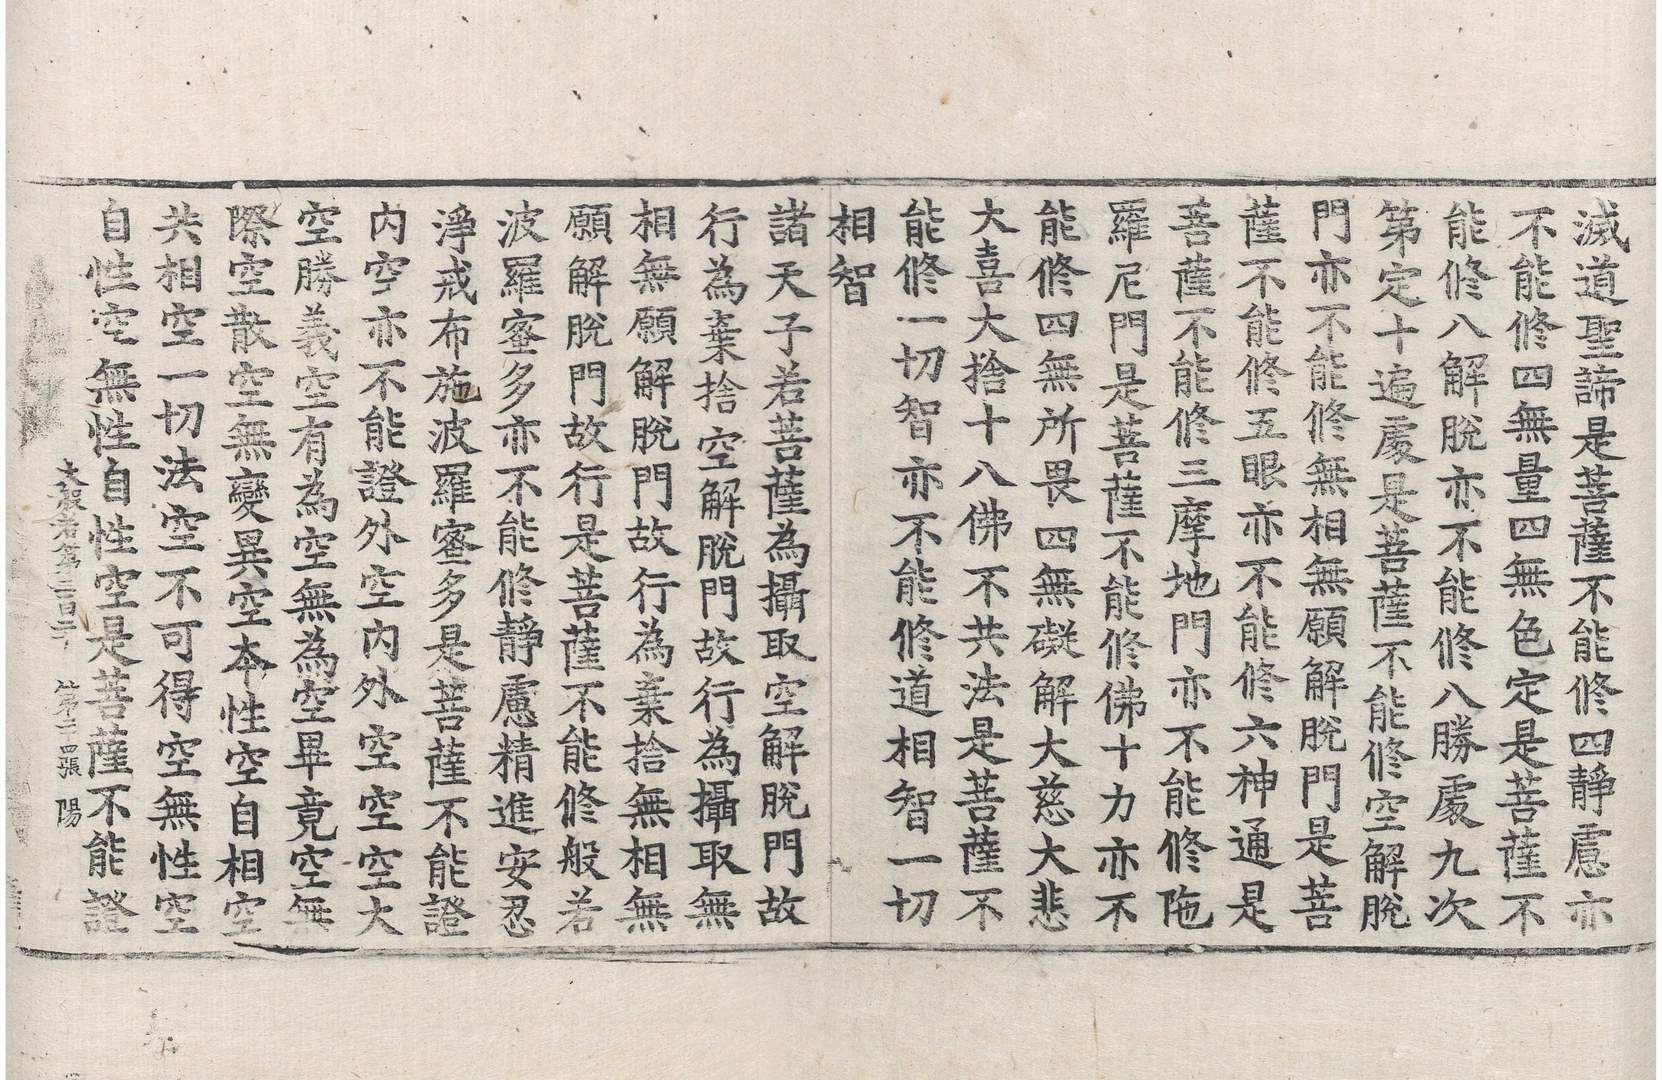 滅道聖諦是菩薩不能修四靜慮亦
不能修四無量四無色定是菩薩不
能修八解脫亦不能修八勝處九次
第定十遍處是菩薩不能修空解脫
門亦不能修無相無願解脫門是菩
薩不能修五眼亦不能修六神通是
菩薩不能修三摩地門亦不能修陁
羅尼門是菩薩不能修佛十力亦不
能修四無所畏四無礙解大慈大悲
大喜大捨十八佛不共法是菩薩不
能修一切智亦不能修道相智一切
相智
諸天子若菩薩為攝取空解脫門故
行為棄捨空解脫門故行為攝取無
相無願解脫門故行為棄捨無相無
願解脫門故行是菩薩不能修般若
波羅蜜多亦不能修靜慮精進安忍
淨戒布施波羅蜜多是菩薩不能證
內空亦不能證外空內外空空空大
空勝義空有為空無為空畢竟空無
際空散空無變異空本性空自相空
共相空一切法空不可得空無性空
自性空無性自性空是菩薩不能證
大般若第三百二十 第二十四張 陽